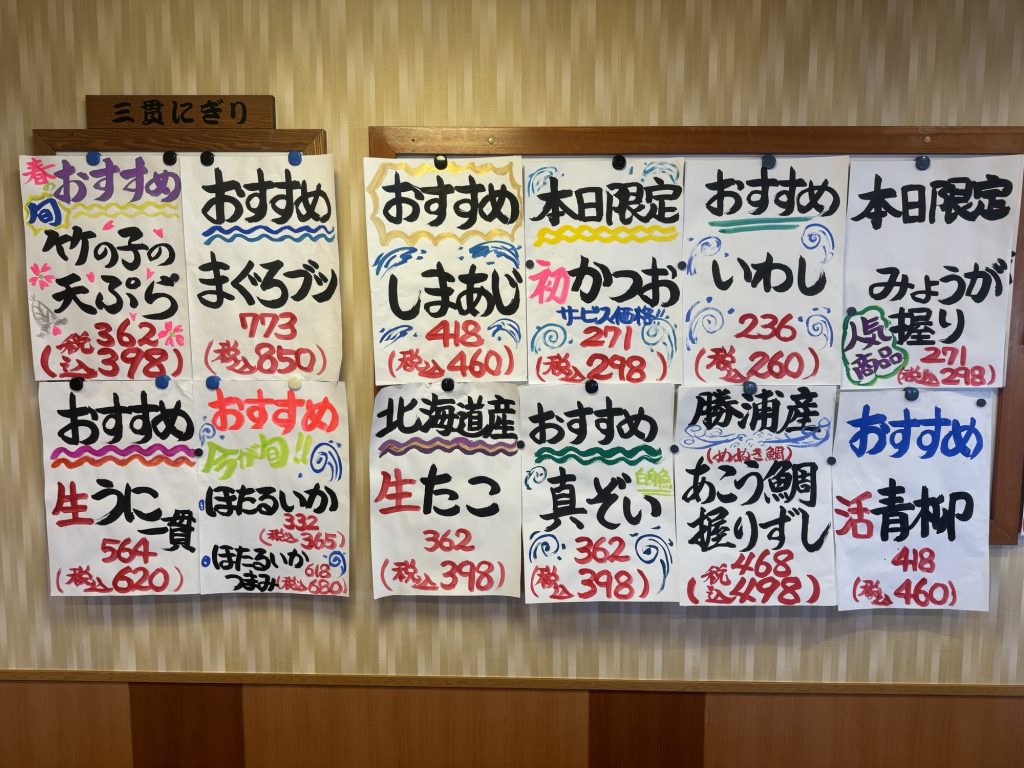 三貫にぎり
春の旬
おすすめ
竹の子の
天ぷら
362
(税込398)
おすすめ
まぐろブツ
773
(税込850)
おすすめ
生うに
一貫
564
(税込620)
おすすめ
今が旬!!
ほたるいか
332
(税込365)
ほたるいか
つまみ
618
(税込680)
おすすめ
しまあじ
418
(税込460)
本日限定
初かつお
サービス価格!!
271
(税込298)
おすすめ
いわし
236
(税込260)
本日限定
みょうが
握り
人気
商品
271
(税込298)
北海道産
生たこ
362
(税込398)
おすすめ
白身魚
真ぞい
362
(税込398)
勝浦産
(めぬき鯛)
あこう鯛
握りずし
468
(税込498)
おすすめ
活青柳
418
(税込460)